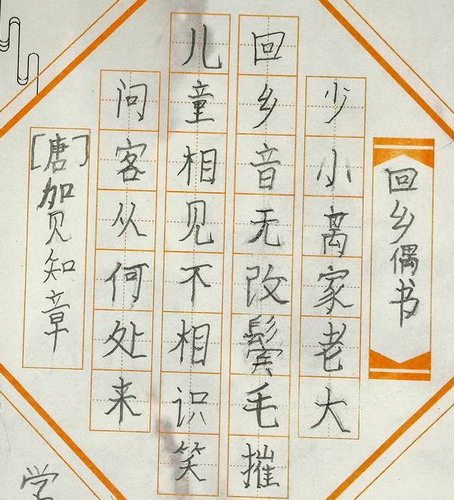 回乡偶书
少小离家老大
回乡音无改鬓毛摧
儿童相见不相识笑
问客从何处来
[唐]加见知章
学